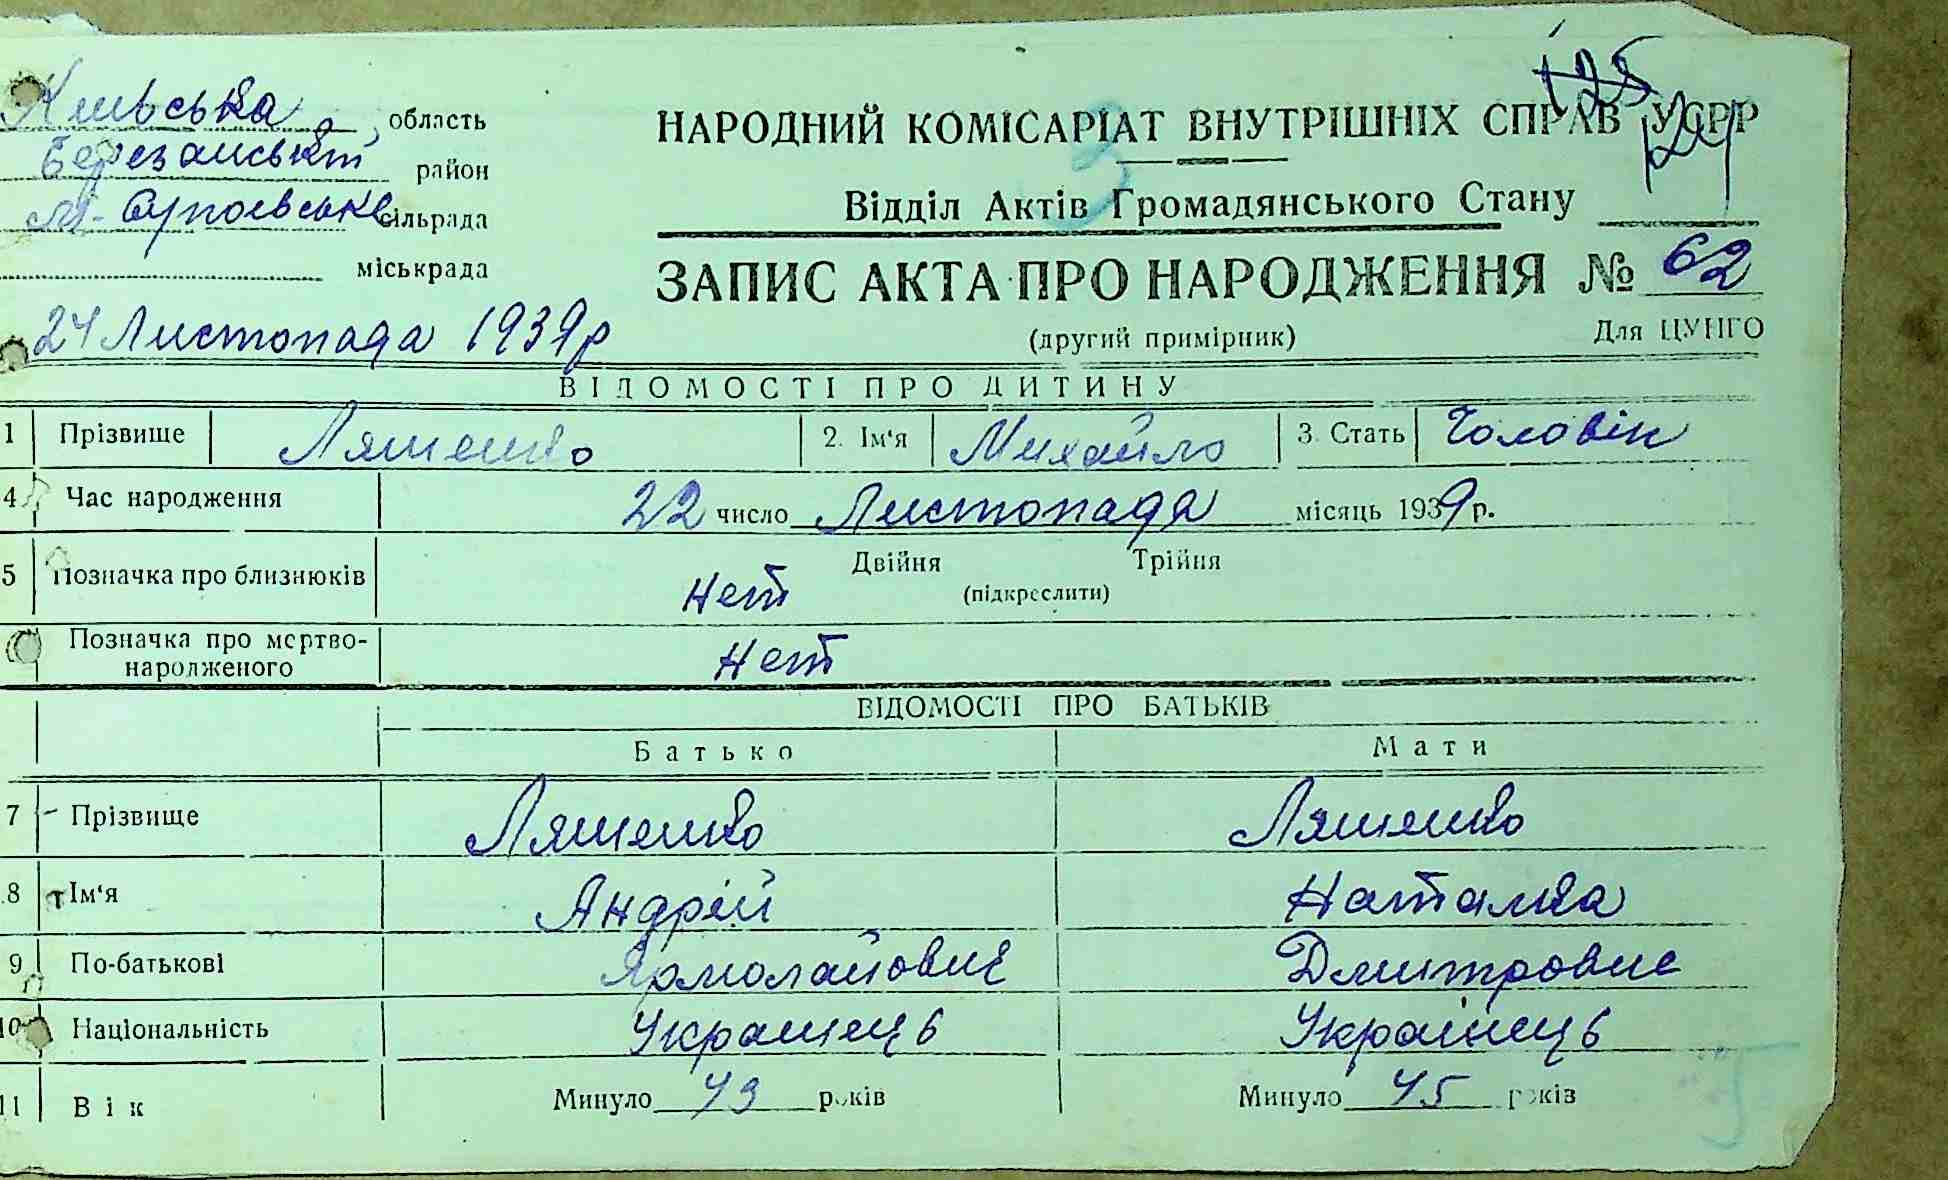 Київська область
Березанський район
М-Супоївське сільрада
міськрада
24 Листопада 1939 р
125
124
НАРОДНИЙ КОМІСАРІАТ ВНУТРІШНІХ СПРАВ УСРР
3
Відділ Актів Громадянського Стану
ЗАПИС АКТА ПРО НАРОДЖЕННЯ № 62
(другий примірник) Для ЦУНГО
ВІДОМОСТІ ПРО ДИТИНУ
1 Прізвище Ляшенко 2. Ім‘я Михайло 3. Стать Чоловік
4 Час народження 22 число Листопада місяць 1939 р.
5 Позначка про близнюків Нет Двійня Трійня
(підкреслити)
Позначка про мертво-
народженого Нет
ВІДОМОСТІ ПРО БАТЬКІВ
Батько Мати
7 Прізвище Ляшенко Ляшенко
8 Ім‘я Андрій Наталка
9 По-батькові Ярмолайович Дмитровне
10 Національність Українець Українець
11 Вік Минуло 43 років Минуло 45 років